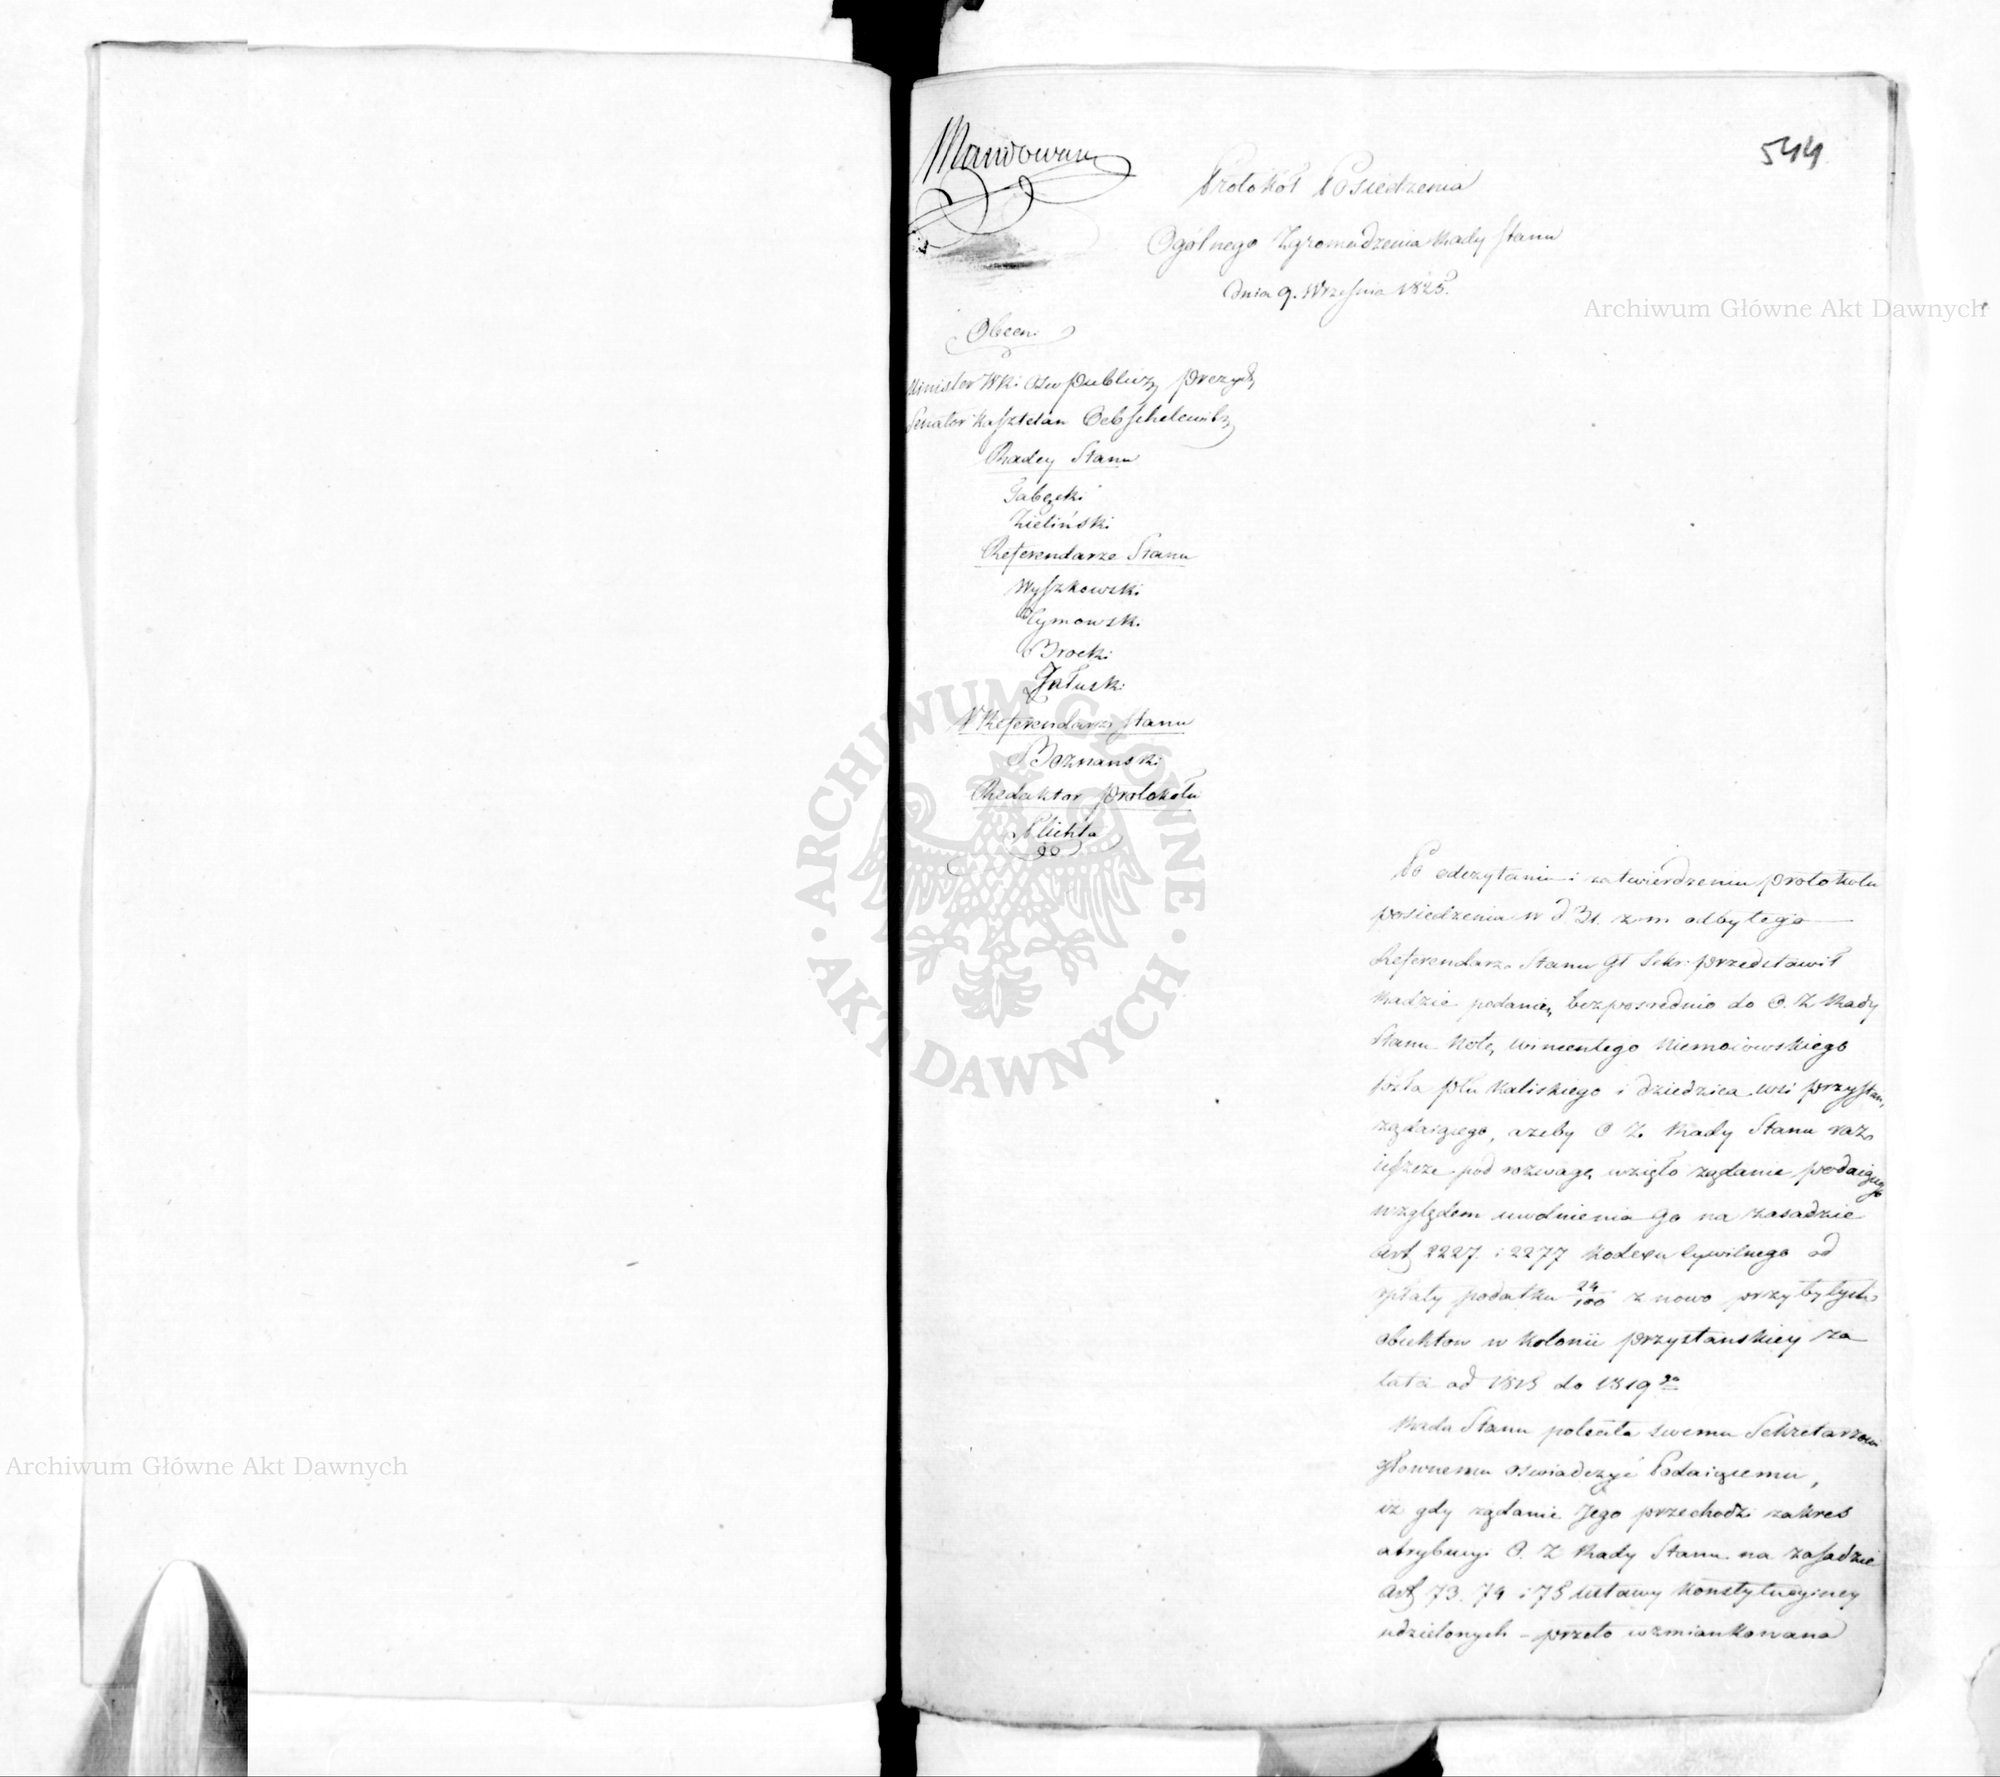 544
Protokół Posiedzenia
Ogólnego Zgromadzenia Rady Stanu
Dnia 9. Wrzesnia 1825.
Obecni
Minister publicz
Senator Kasztelan
Radcy Stanu
Zieliński
Referendarze Stanu
Wyszkowski
Tymowski
Brocki
Załuski
Referendarz Stanu
Boznanski
Redaktor protokołu
Plichta
Po odczytaniu i zatwierdzeniu protokołu
posiedzenia w d. 31. z. m. odbytego
Referendarz Stanu Gł Sekr: przedstawił
Radzie podanie, bezposrednio do O. Z Rady
Stanu Wincentego Niemoiowskiego
Posła Kaliskiego i dziedzica wsi Przystań,
ządaiącego, azeby O Z. Rady Stanu raz
ieszcze pod rozwagę wzięło ządanie podaiącego
względem uwolnienia Go na zasadzie
Art 2227. i 2277 Kodexu Cywilnego od
opłaty podatku 24/100 z nowo przybytych
obiektow w Kolonii Przystanskiey za
lata od 1815 do 1819 go
Rada Stanu poleciła swemu Sekretarzowi
głownemu oswiadczyć Podaiącemu,
iż gdy ządanie Jego przechodzi zakres
atrybucyi O. Z Rady Stanu na zasadzie
Art 73. 74 i 75 Ustawy Konstytucyiney
udzielonych – przeto wzmiankowana
Archiwum Główne Akt Dawnych
Archiwum Główne Akt Dawnych
ARCHIWUM GŁÓWNE · AKT DAWNYCH ·